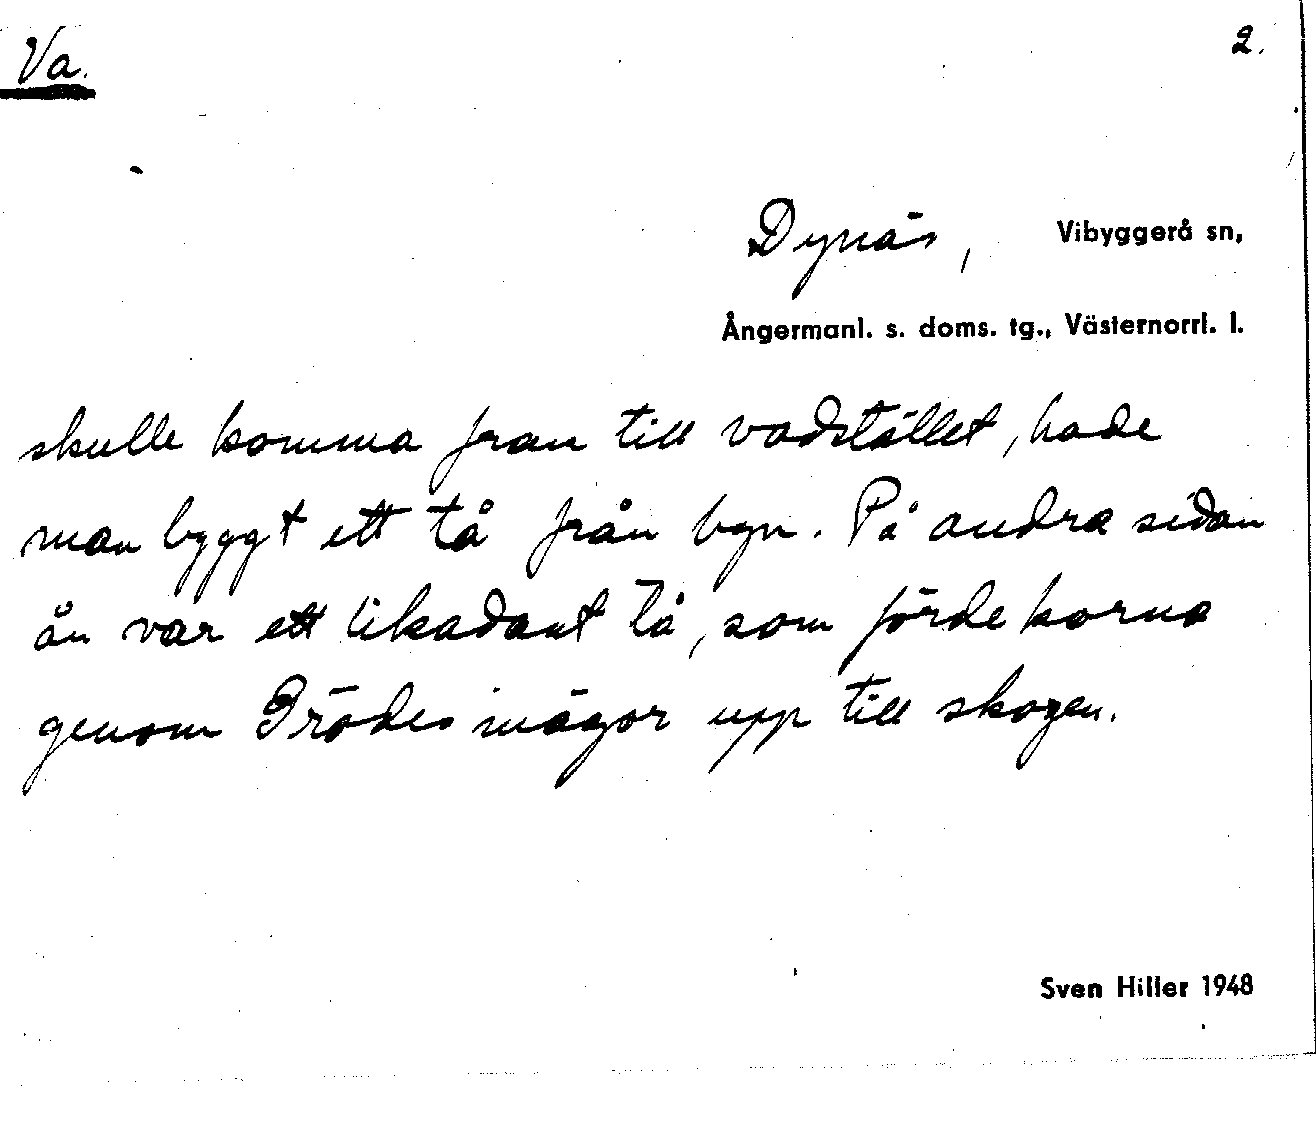 Va.
2.
Dynäs, Vibyggerå sn,
Ångermanl. s. doms. tg., Västernorrl. l.
skulle komma fram till vadstället, hade
man byggt ett tå från byn. På andra sidan
ån var ett likadant tå, som förde korna
genom Grödes inägor upp till skogen.
Sven Hiller 1948